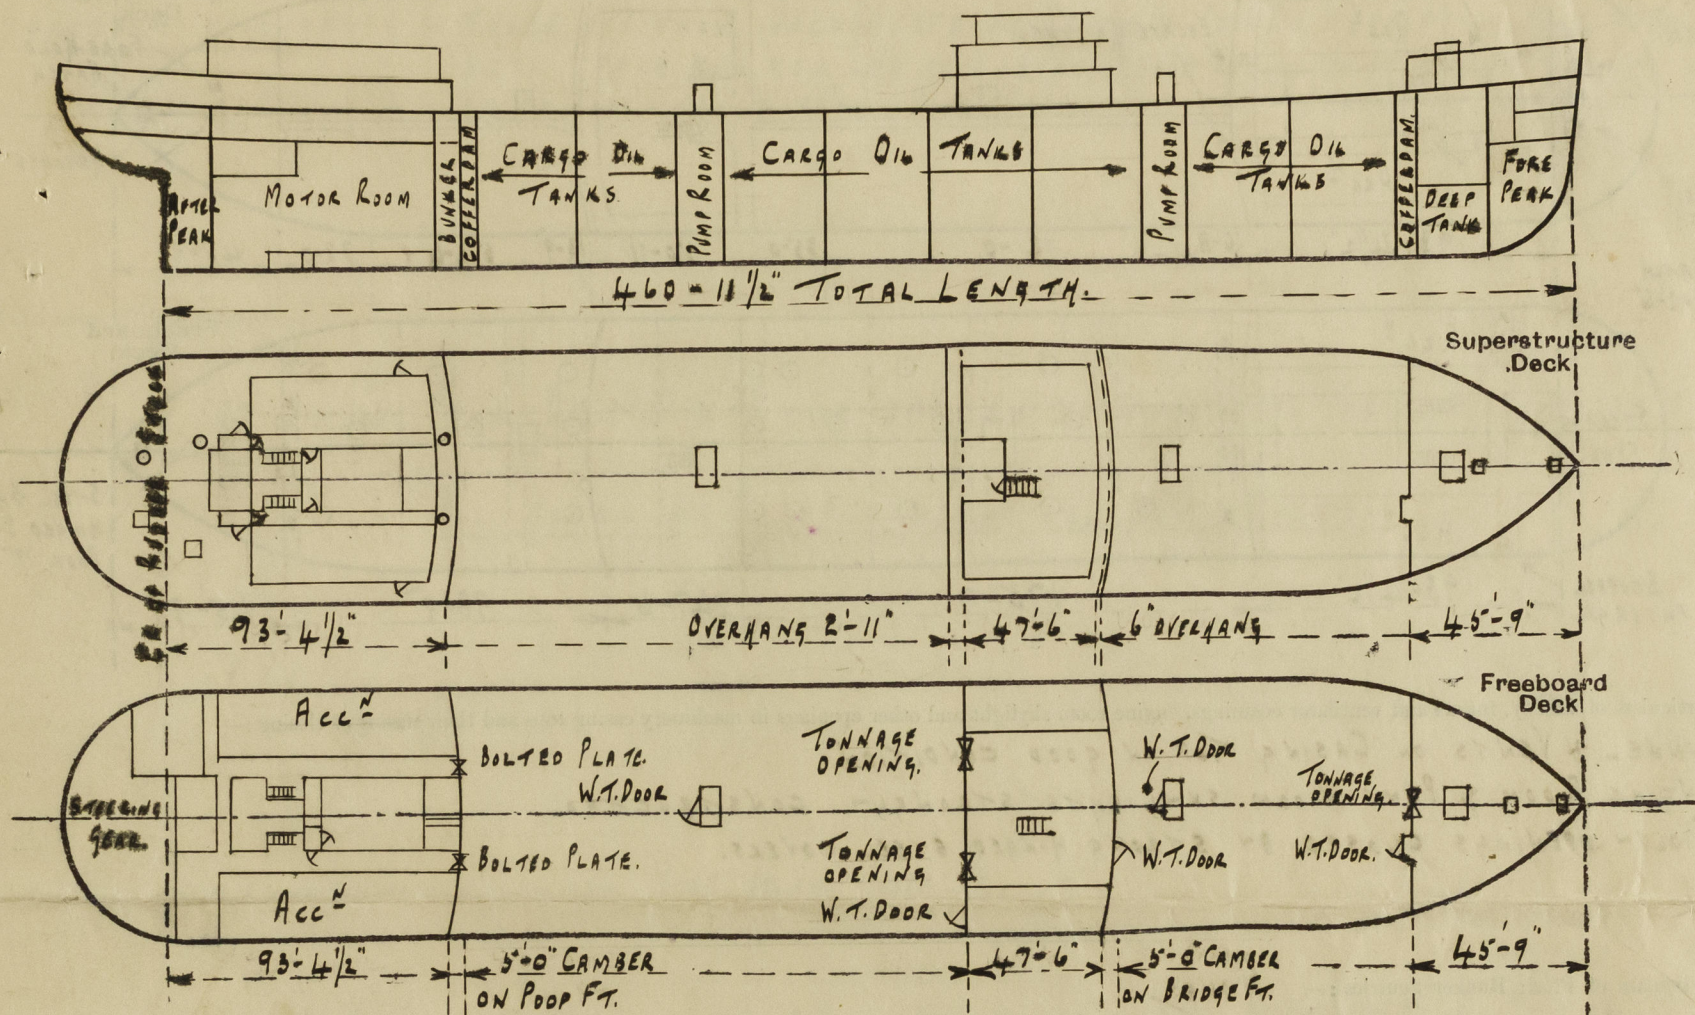 AFTER
PEAK
MOTOR ROOM
BUNKER
COFFERDAM
CARGO OIL
TANKS
PUMP ROOM
CARGO OIL TANKS
PUMP ROOM
CARGO OIL
TANKS
COFFERDAM.
DEEP
TANK
FORE
PEAK
460 - 11 1/2" TOTAL LENGTH.
Superstructure
Deck
93'- 4 1/2"
OVERHANG 2'-11"
47'-6"
6" OVERHANG
45'-9"
Freeboard
Deck
STEERING
GEAR
Acc N
Acc N
BOLTED PLATE.
BOLTED PLATE.
W.T. DOOR
TONNAGE
OPENING.
TONNAGE
OPENING
W.T. DOOR
W.T. DOOR
W.T. DOOR
TONNAGE
OPENING.
W.T. DOOR.
93'- 4 1/2"
5'-0" CAMBER
ON POOP FT.
47'-6"
5'-0" CAMBER
ON BRIDGE FT.
45'-9"